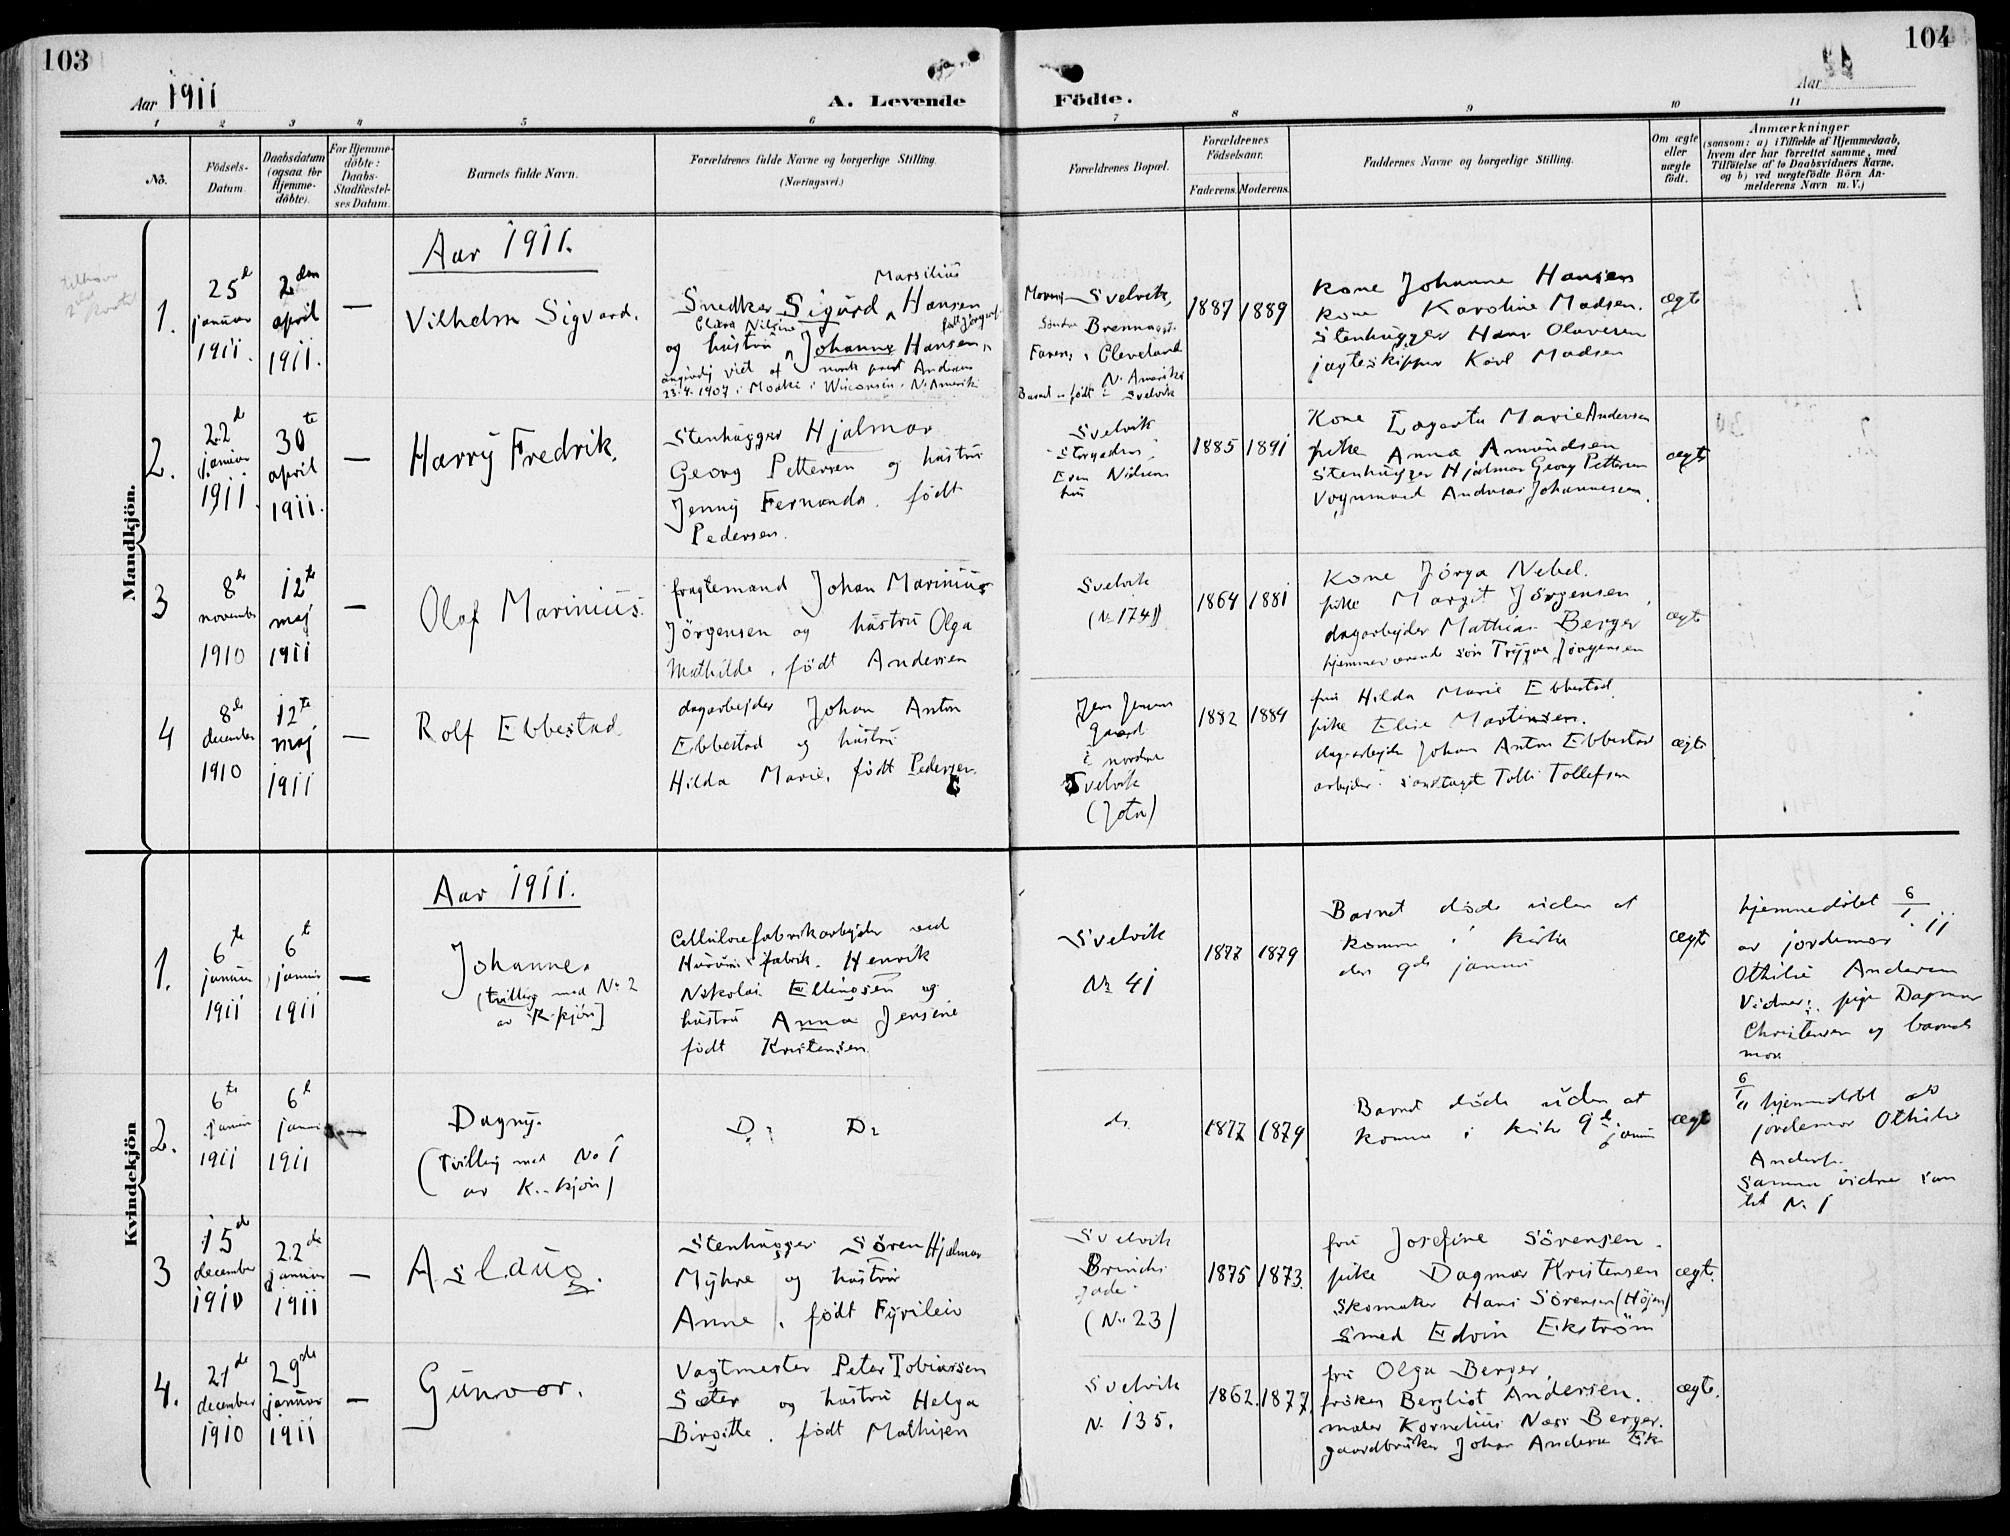 103
104
Aar 1911
A. Levende
Födte.
Aar 11
1 2 3 4 5 6 7 8 9 10 11
No.
Födsels-Datum.
Daabsdatum (ogsaa for Hjemme-döbte).
For Hjemme-döbte: Daabs-Stadfæstel-ses Datum.
Barnets fulde Navn.
Forældrenes fulde Navne og borgerlige Stilling.
(Næringsvei.)
Forældrenes Bopæl.
Forældrenes Födselsaar.
Faderens. Moderens.
Faddernes Navne og borgerlige Stilling.
Om ægte eller uægte födt.
Anmærkninger
(saasom: a) i Tilfælde af Hjemmedaab,
hvem der har forrettet samme, med
Tilföielse af to Daabsvidners Navne,
og b) ved uægtefödte Börn An-
melderens Navn m. V.)
Mandkjön.
Aar 1911.
1.
25d januar 1911.
2den april 1911.
—
Vilhelm Sigvard.
Marsilius
Snedker Sigurd Hansen
Clara Nilsine
og hustru Johanne Hansen
angivelig viet af norsk prest Andersen
23.4.1907 i Wisconsin. N. Amerik
Moren: Svelvik,
Söndre Brenna
Faren: i Cleveland
N. Amerika
Barnet födt i Svelvik
1887 1889
Kone Johanne Hansen
Kone Karoline Madsen.
Stenhugger Hans Olavesen
jagteskipper Karl Madsen
ægte
2.
22d januar 1911.
30te april 1911.
—
Harry Fredrik.
Stenhugger Hjalmar
Georg Pettersen og hustru
Jenny Fernanda. födt
Pedersen.
Svelvik
Storgaden,
Even Nilsens
hus
1885 1891
Kone Lagerta Marie Andersen
pike Anna Amundsen
Stenhugger Hjalmar Georg Pettersen
Vognmand Andreas Johannessen.
ægte
3
8de november 1910
12te maj 1911
—
Olaf Marinius.
fragtemand Johan Marinius
Jörgensen og hustru Olga
Mathilde, födt Andersen
Svelvik
(No 174)
1864 1881
Kone Jörga Nebel.
pike Margit Jörgensen,
dagarbejder Mathias Berger
hjemmeværende sön Trygve Jörgensen
ægte
4
8de december 1910
12te maj 1911
—
Rolf Ebbestad.
dagarbejder Johan Anton
Ebbestad og hustru
Hilda Marie, födt Pedersen.
Jens Jensens
gaard
i nordre
Svelvik
1882 1884
fru Hilda Marie Ebbestad.
pike Elise Martinsen.
dagarbejder Johan Anton Ebbestad
arbejder i sandtaget Tollefsen
ægte
Kvindekjön
Aar 1911.
1.
6te januar 1911
6t januar 1911
—
Johanne.
(tvilling med No 2
av K.kjön)
Cellulosefabrikarbejder ved
Hurums fabrik. Henrik
Nikolai Ellingsen og
hustru Anna Jensine
födt Kristensen
Svelvik
No 41
1877 1879
Barnet döde uden at
komme i kirke
den 9de januar
ægte
hjemmedöbt 6/1 . 11
av jordemor
Othilie Andersen
Vidner: pige Dagmar
Christensen og barnets
mor.
2.
6te januar 1911
6t januar 1911
—
Dagny.
(Tvilling med No 1
av K.-kjön)
Do Do
do
1877 1879
Barnet döde uden at
komme i kirke 9de januar
ægte
6/1 11 hjemmedöbt av
jordemor Othilie
Andersen.
Samme vidner som
til No 1
3
15de december 1910
22de januar 1911
—
Aslaug.
Stenhugger Sören Hjalmar
Myhre og hustru
Anne, födt Fyrileiv
Svelvik
(No 23)
1875 1873.
fru Josefine Sörensen.
pike Dagmar Kristensen
Skomaker Hans Sörensen (Höjen)
Smed Edvin Eikström
ægte.
4.
21de december 1910
29de januar 1911
—
Gunvor.
Vagtmester Peter Tobiassen
Sæter og hustru Helga
Birgitte, födt Mathisen
Svelvik
No 135.
1862. 1877.
fru Olga Berger,
fröken Bergliot Andersen.
maler Kornelius Næss Berger.
gaardbruker Johan Andersen Eik
ægte.